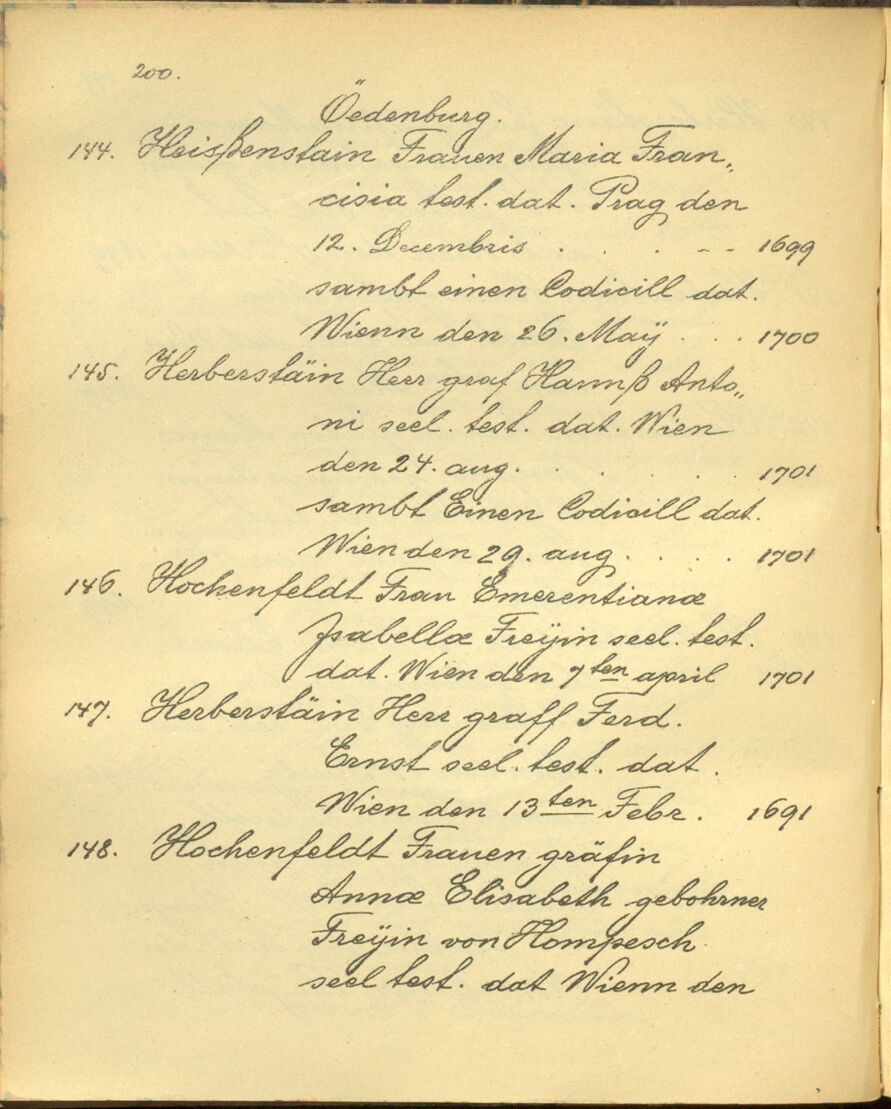 200.
Öedenburg.
144. Heisßenstain Frauen Maria Fran„
cisia test. dat. Prag den
12. Decembris . . . - - 1699
sambt einen Codicill dat.
Wienn den 26. Maÿ . . . 1700
145. Herberstäin Herr graf Hannß Anto„
ni seel. test. dat. Wien
den 24. aug. . . . . . 1701
sambt Einen Codicill dat.
Wien den 29. aug. . . . 1701
146. Hochenfeldt Frau Emerentianæ
Jsabellæ Freÿin seel. test.
dat. Wien den 7ten april 1701
147. Herberstäin Herr graff Ferd.
Ernst seel. test. dat.
Wien den 13ten Febr. 1691
148. Hochenfeldt Frauen gräfin
Annæ Elisabeth gebohrner
Freÿin von Hompesch
seel test. dat Wienn den